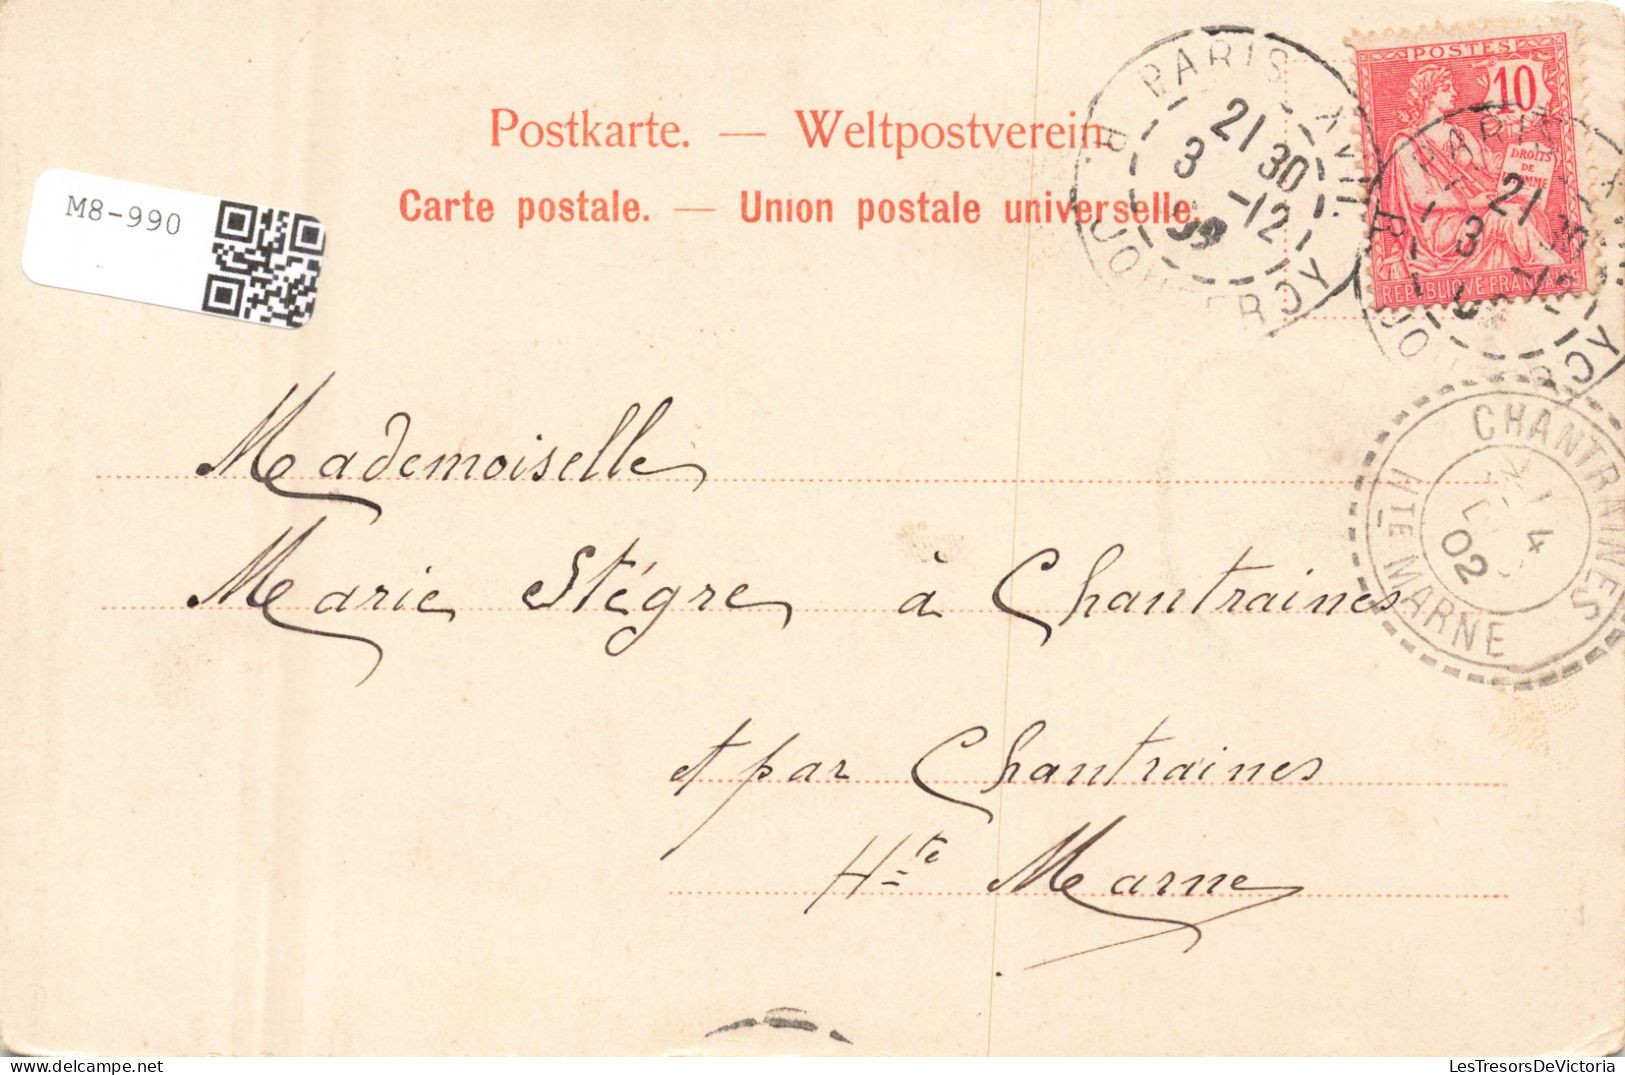 Postkarte. — Weltpostverein.
Carte postale. — Union postale universelle.
M8-990
POSTES
10
DROITS
DE
REPUBLIQUE FRANCAISE
PARIS XVII
21 30
3 -12
R. JOUFFROY
PARIS
21 30
3 -12
CHANTRAINES
4
02
HTE MARNE
Mademoiselle
Marie Stégre à Chantraines
et par Chantraines
Hte Marne
LesTresorsDeVictoria